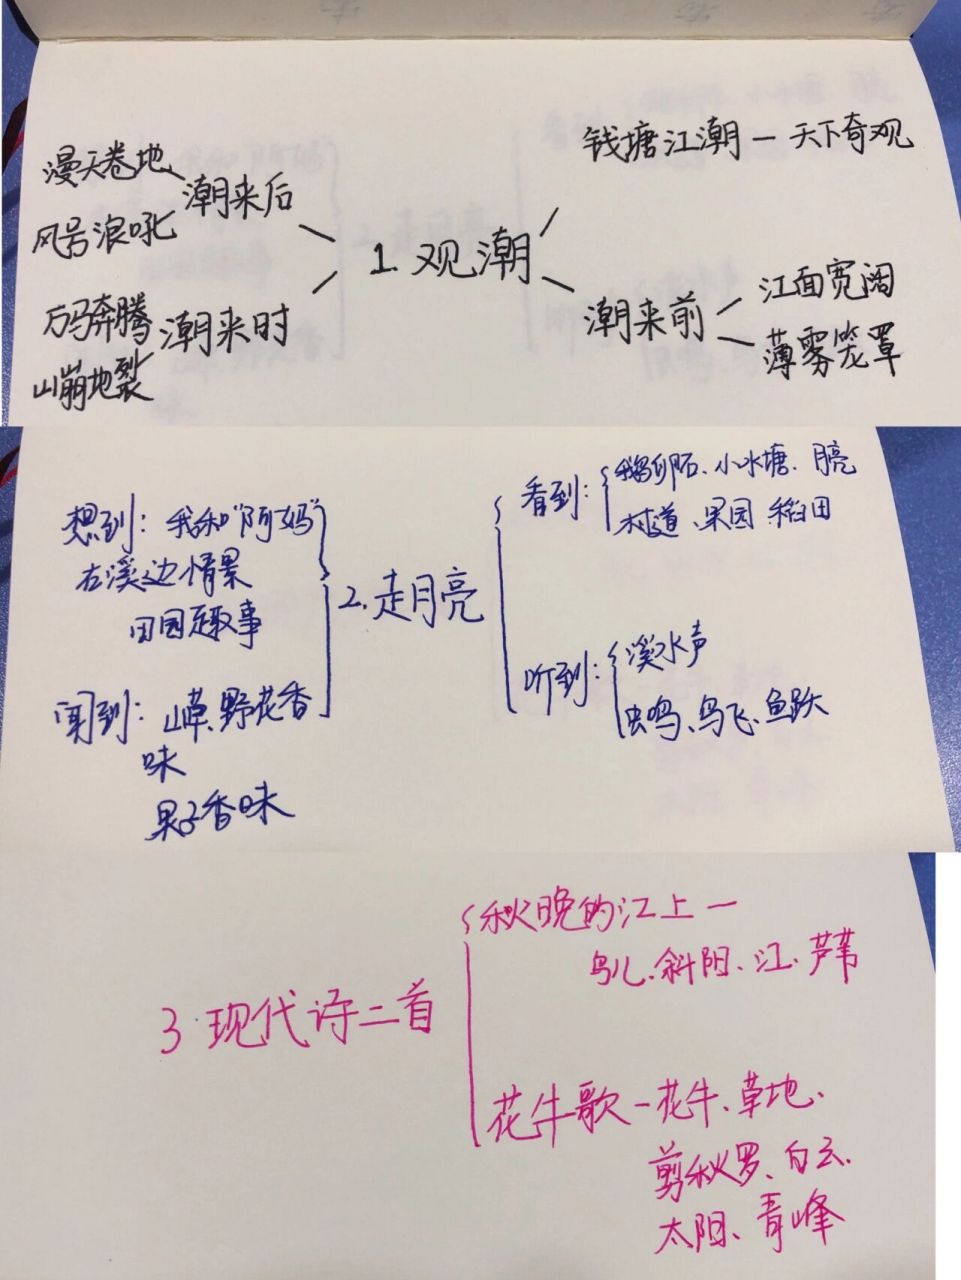 钱塘江潮一天下奇观
漫天卷地
潮来后
风号浪吼
1.观潮
万马奔腾
潮来时
山崩地裂
潮来前
江面宽阔
薄雾笼罩
想到：我和“阿妈”
在溪边情景
田园趣事
闻到：山草、野花香
味
果子香味
2.走月亮
看到：
鹅卵石、小水塘、月亮
村道、果园、稻田
听到：
溪水声
虫鸣、鸟飞、鱼跃
3.现代诗二首
秋晚的江上一
鸟儿、斜阳、江、芦苇
花牛歌一花牛、草地、
剪秋罗、白云、
太阳、青峰